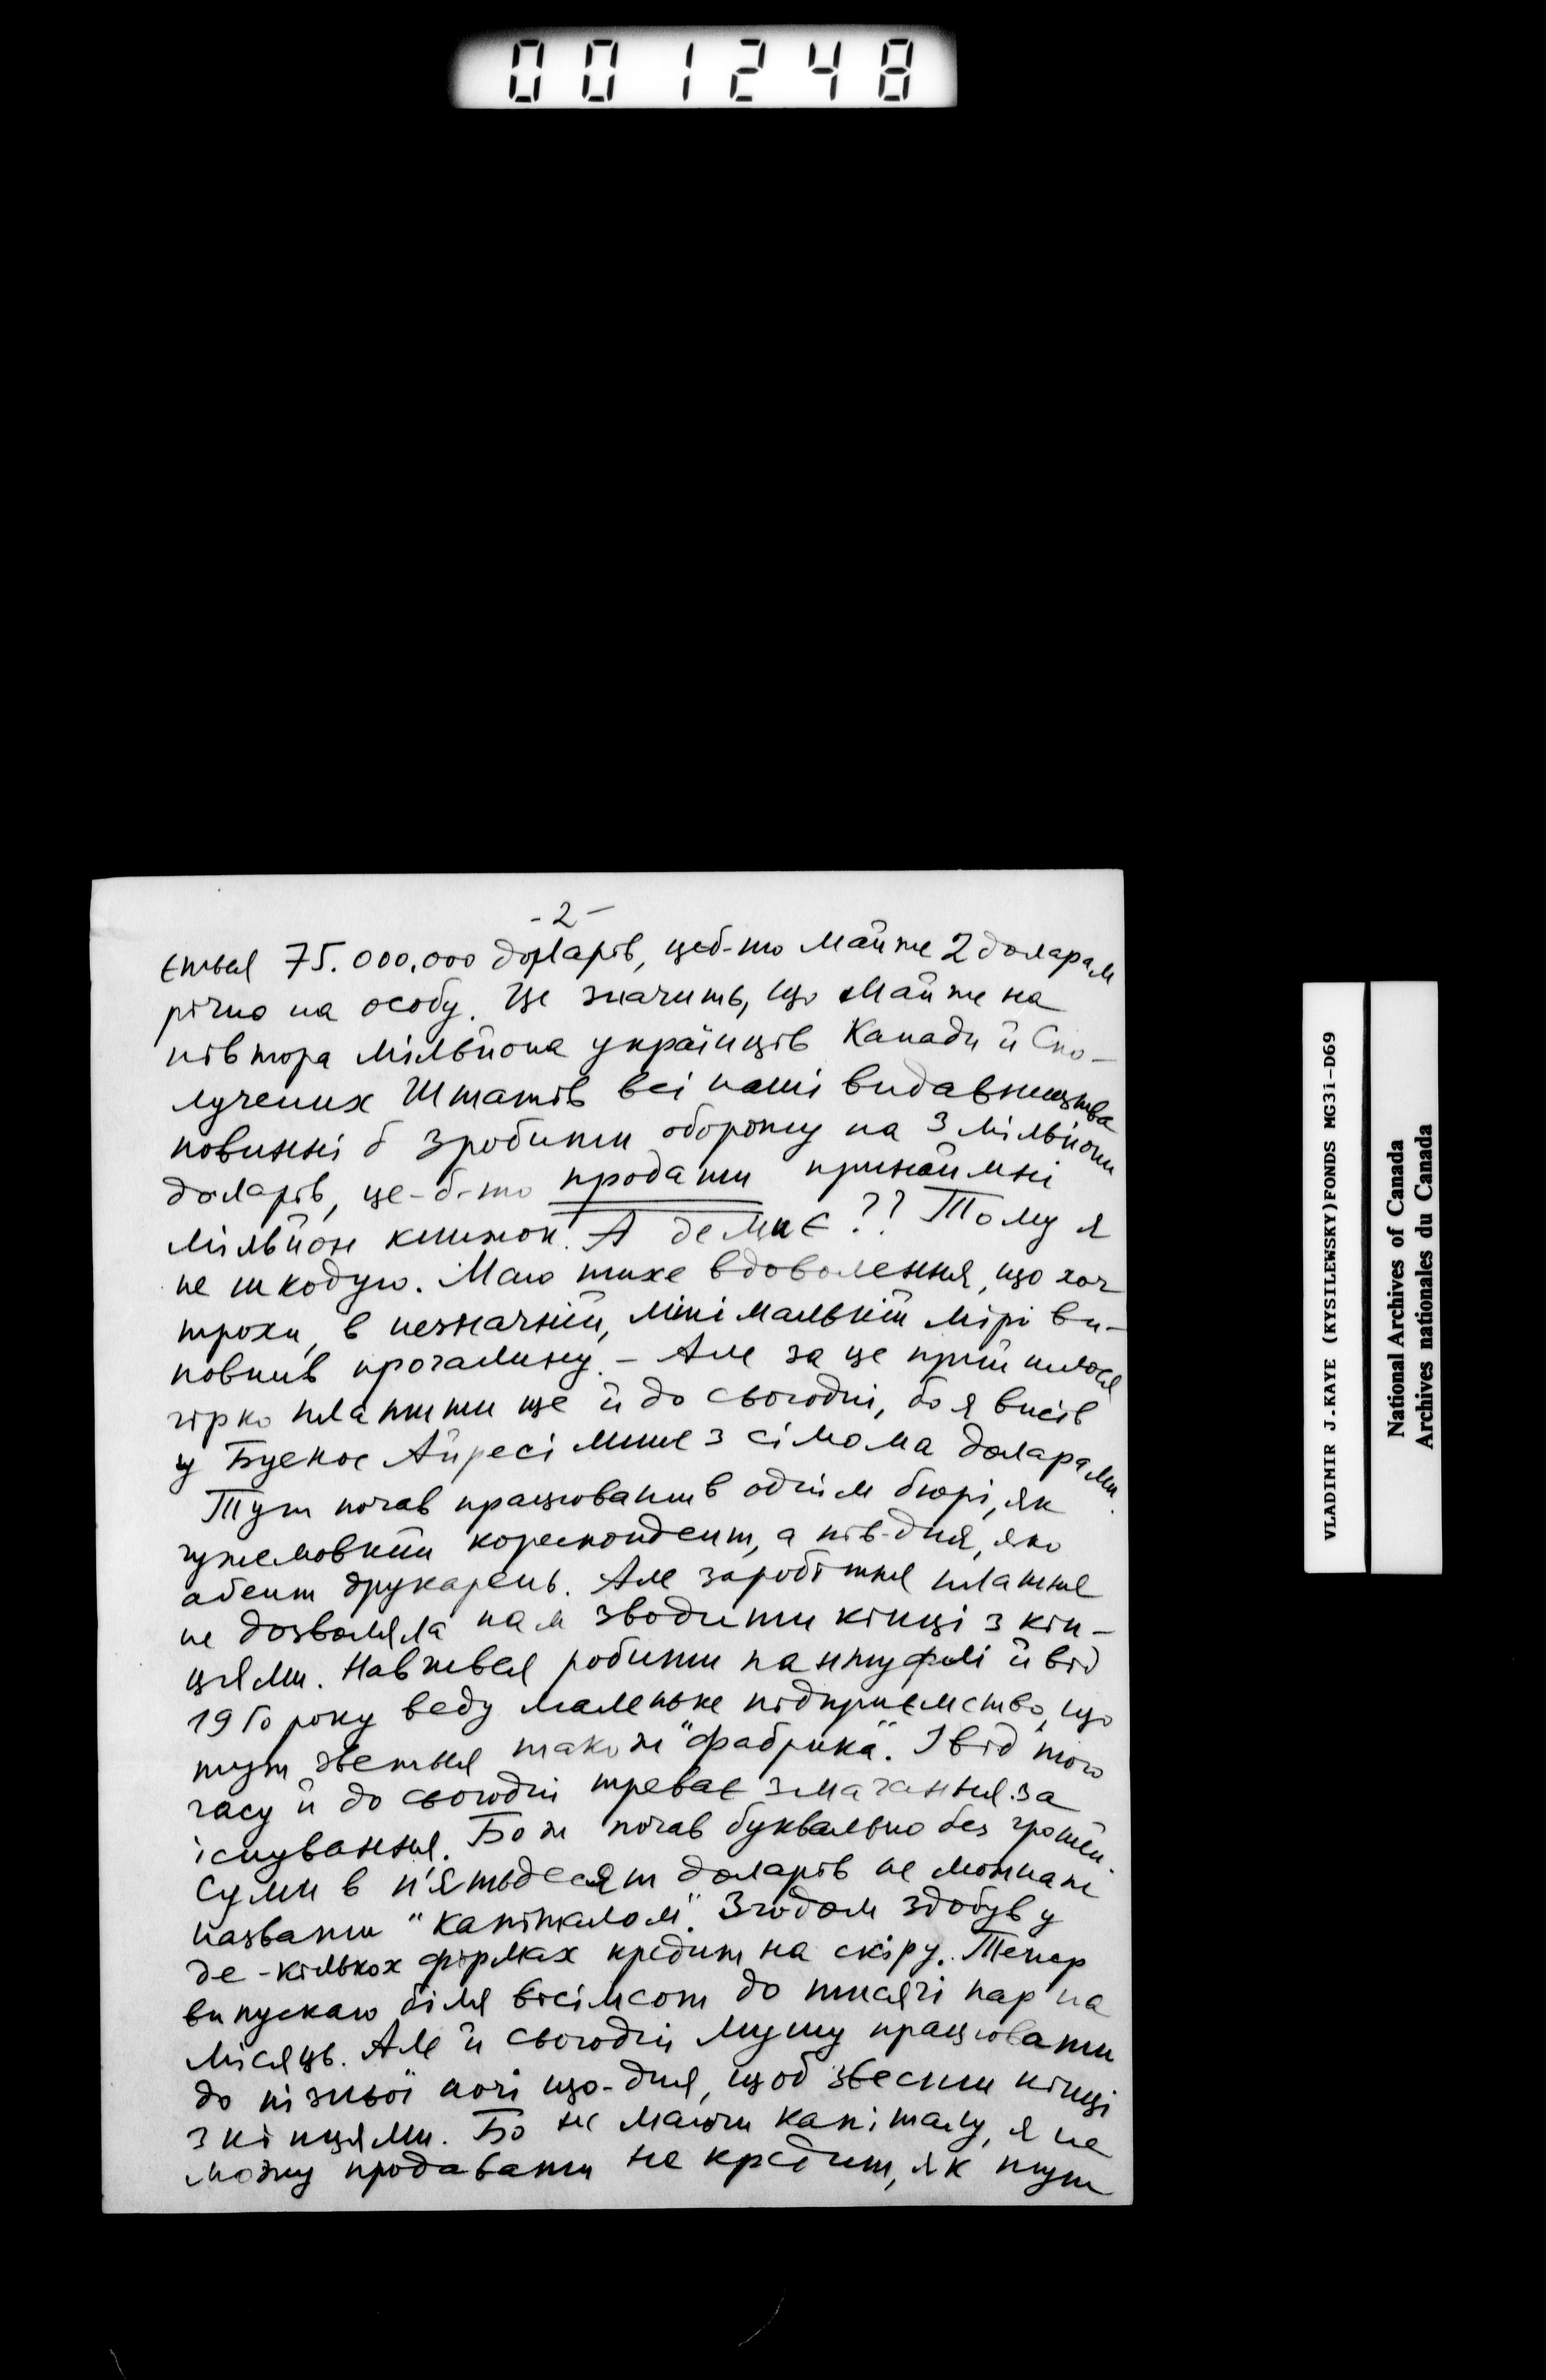 001248
-2-
ється 75.000.000 доларів, цеб-то майже 2 долярам
річно на особу. Це значить, що майже на
півтора мільйона українців Канади й Спо-
лучених Штатів всі наші видавництва
повинні б зробити обороту на 3 мільйони
доларів, це-б-то продати принаймні
мільйон книжок. А де ми є?? Тому я
не шкодую. Маю тихе вдоволення, що хоч
трохи, в незначній, мінімальній мірі ви-
повнив прогалину. - Але за це прийшлося
гірко платити ще й до сьогодні, бо я висів
у Буенос Айресі лише з сімома доларами.
Тут почав працювати в однім бюрі, як
чужемовний кореспондент, а пів-дня, яко
агент друкарень. Але заробітня платня
не дозволяла нам зводити кінці з кін-
цями. Навчився робити пантуфлі й від
19 го року веду маленьке підприємство, що
тут зветься також "фабрика". І від того
часу й до сьогодні треває змагання за
існування. Бо ж почав буквально без грошей.
Суми в п'ятьдесят доларів не можна ж
назвати "капіталом". Згодом здобув у
де-кількох фірмах кредит на скіру. Тепер
випускаю біля вісімсот до тисячі пар на
місяць. Але й сьогодні мушу працювати
до пізньої ночі що-дня, щоб звести кінці
з кінцями. Бо не маючи капіталу, я не
можу продавати на кредит, як тут
VLADIMIR J.KAYE (KYSILEWSKY)FONDS MG31-D69
National Archives of Canada
Archives nationales du Canada